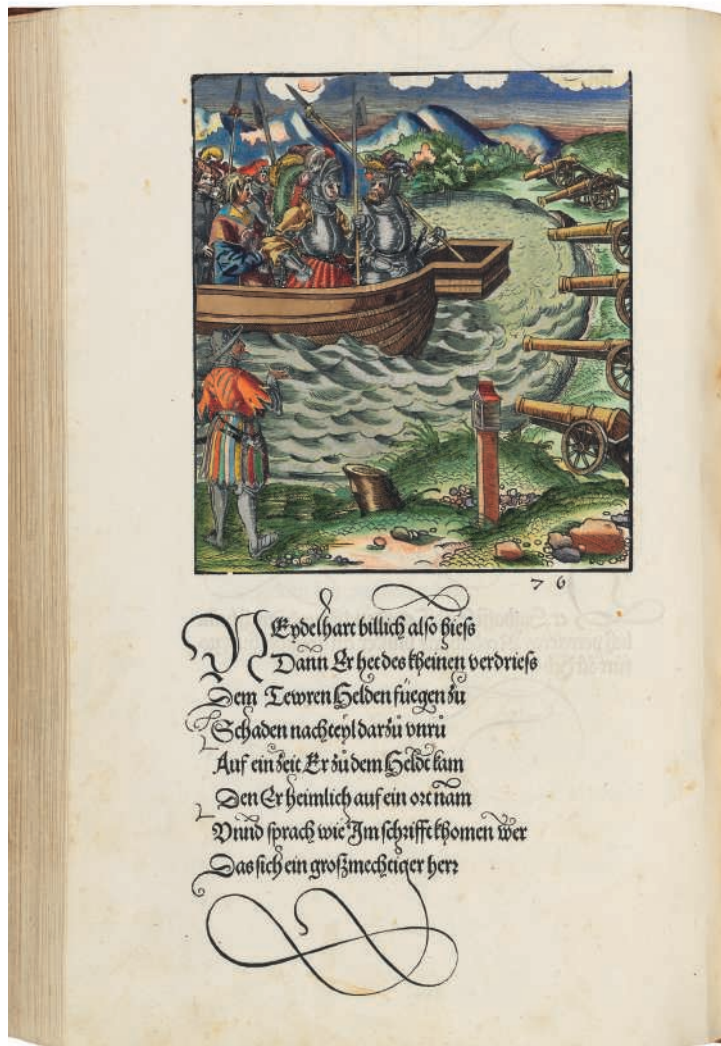 76
NEydelhart billich also hiess
Dann Er het des kheinen verdriess
Dem Tewren Helden füegen zu
Schaden nachteyl darzů vnrů
Auf ein zeit Er zů dem Heldt kam
Den Er heimlich auf ein ort nam
Vnnd sprach wie Im schrifft khomen wer
Das sich ein großmechtiger herr